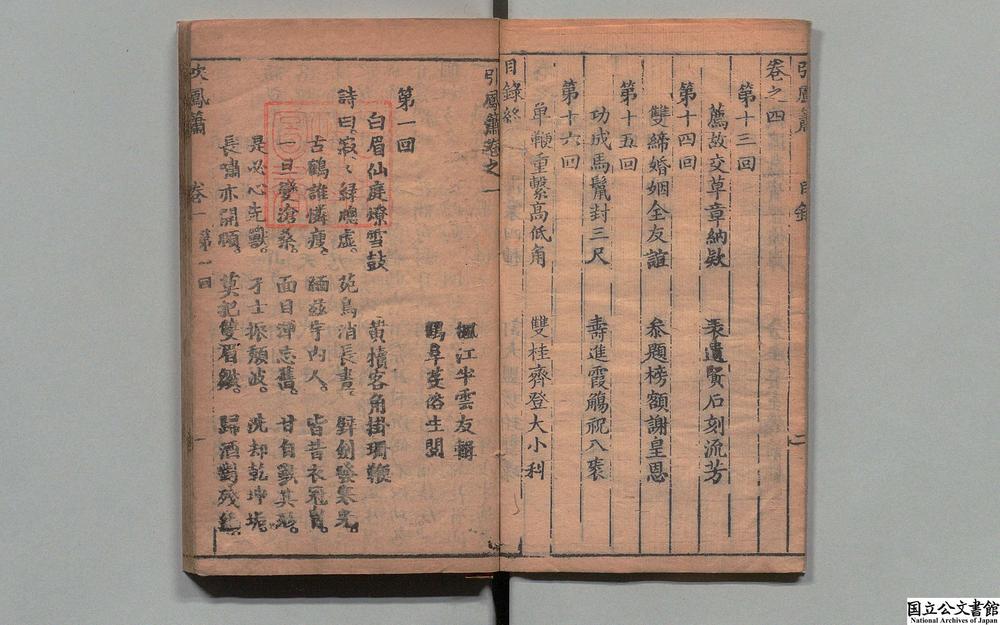 引鳳簫 目錄 二
卷之四
第十三回
薦故交草章納欵 表遺賢石刻流芳
第十四回
雙締婚姻全友誼 叅題榜額謝皇恩
第十五回
功成馬鬣封三尺 壽進霞觴祝八袠
第十六回
单鞭重繫高低角 雙桂齊登大小科
目錄終
引鳳簫卷之一
楓江半雲友輯
鶴阜芟俗生閱
第一回
白眉仙庭燎雪鼓 黄犢客角掛琱鞭
詩曰 寂〻綠牕虛。 苑鳥消長晝。 
古鶴誰憐瘦。 緬兹宇內人。 皆昔衣冠
一旦變滄桑。 面目渾忘舊。 甘自
是必心先獸。 振頹波。 洗却乾坤垢。
長嘯亦開頤。 莫把雙眉皺。 歸酒對殘
吹鳳簫 卷一 第一回 一
国立公文書館
National Archives of Japan